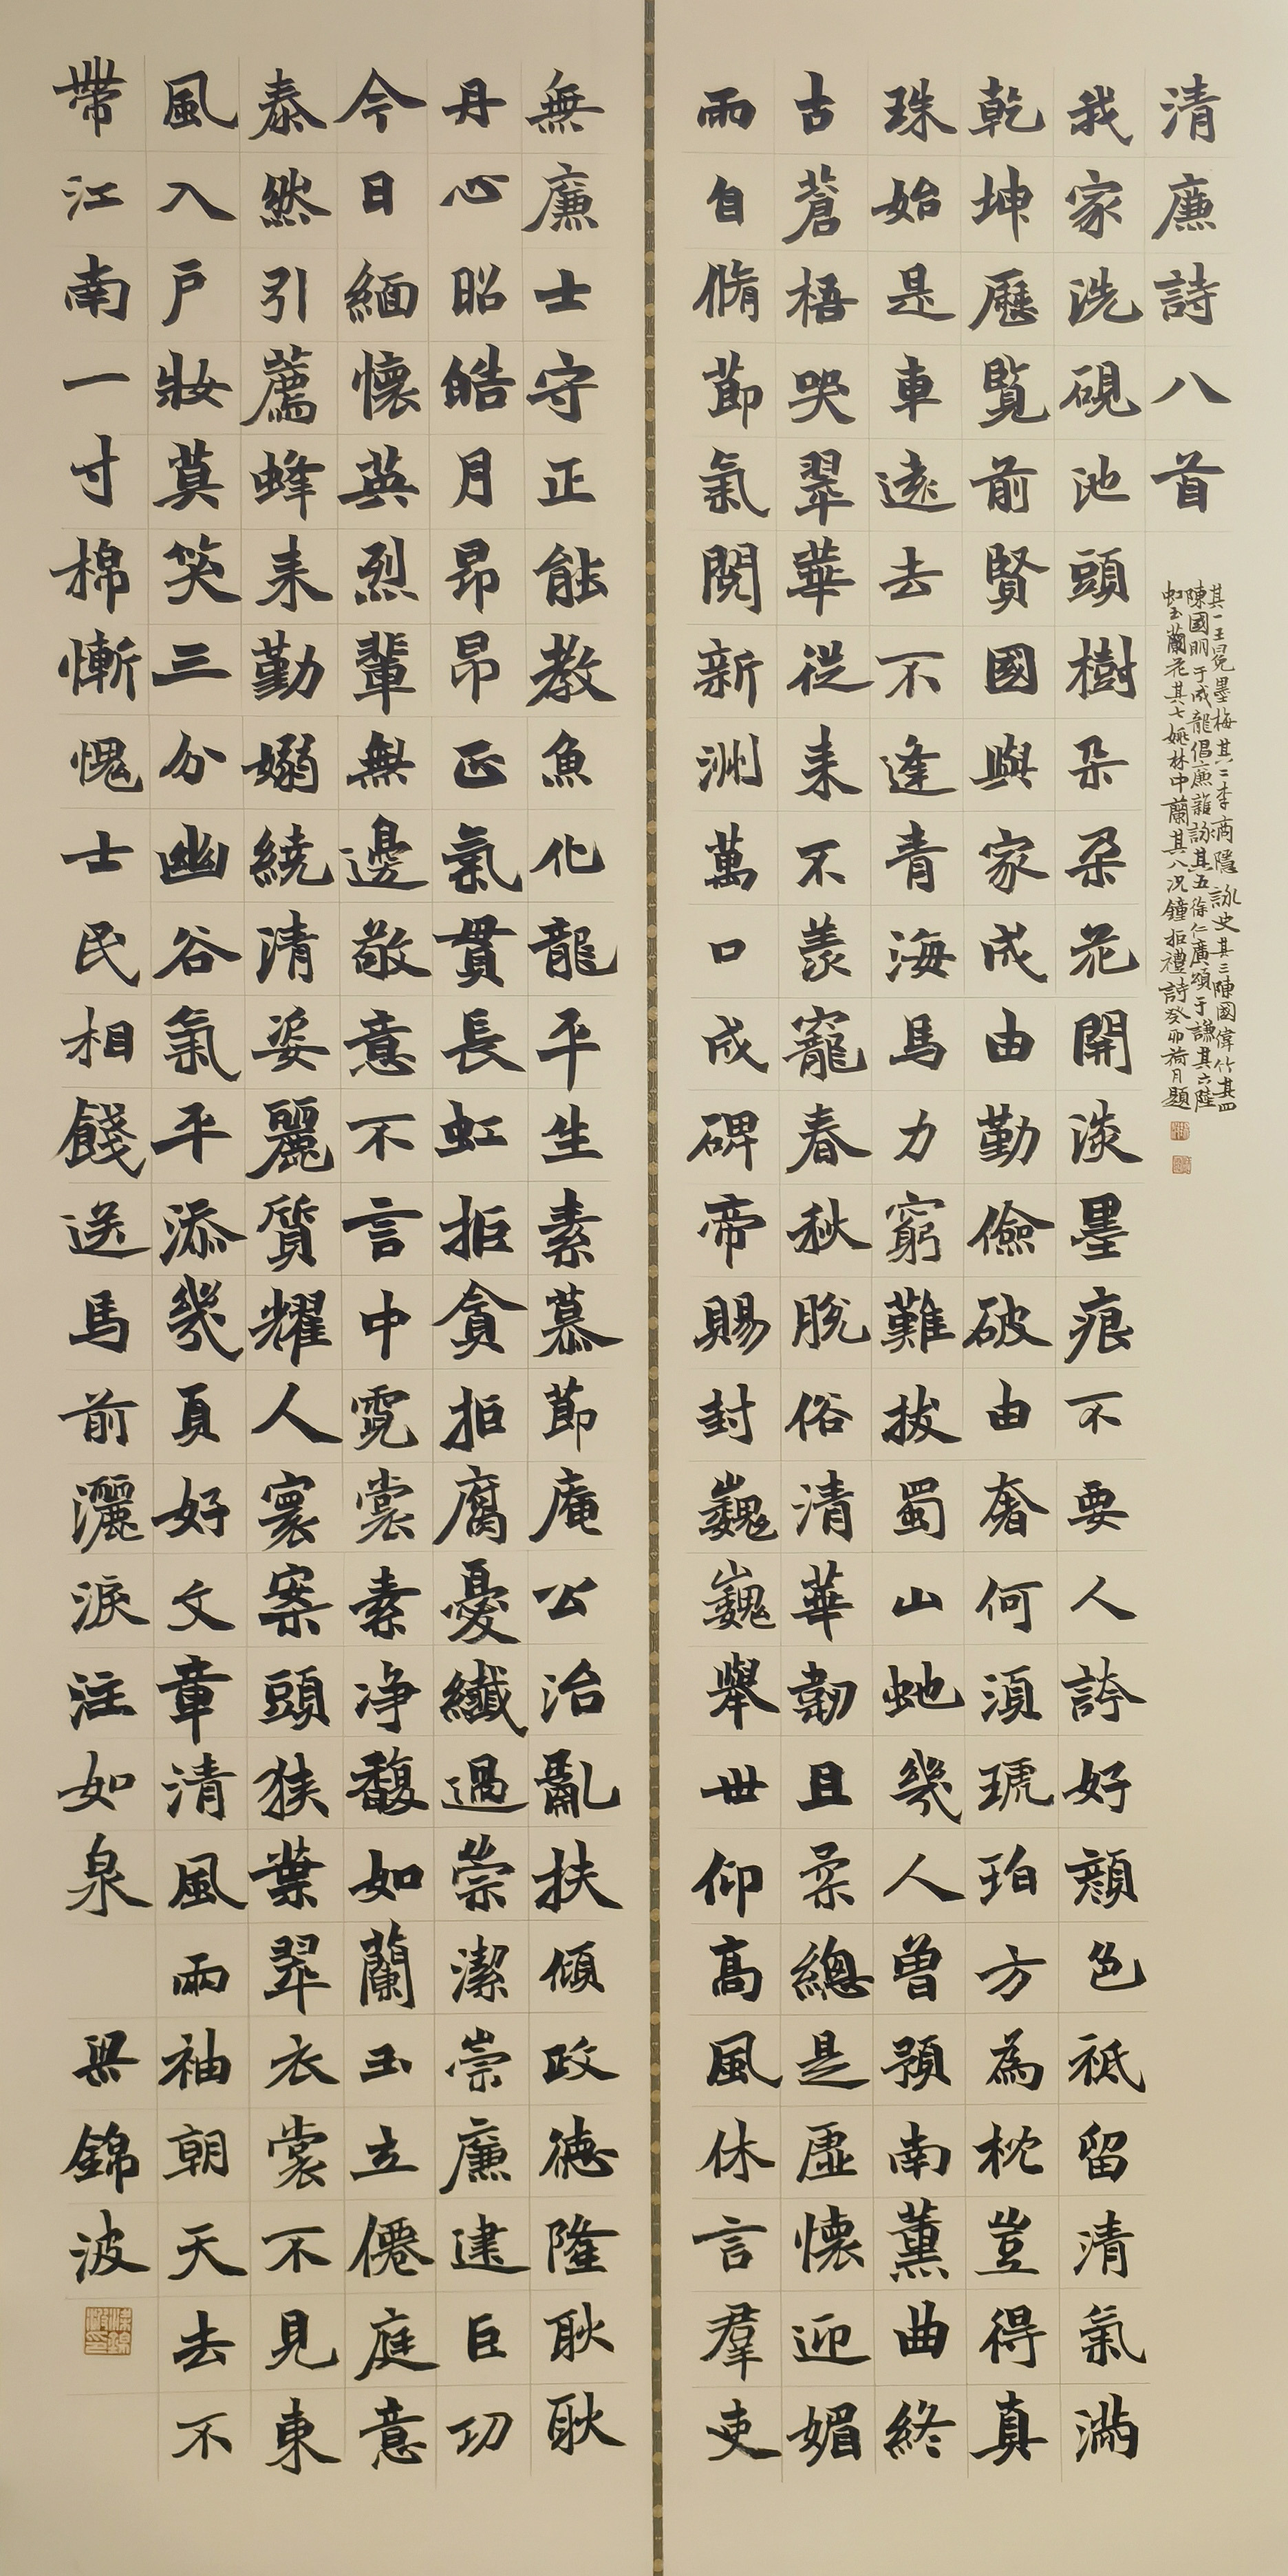 清廉詩八首
其一王冕墨梅其二李商隱詠史其三陳國偉竹其四
陳國明于成龍倡廉謠詠其五徐仁廣頌于謙其六陸
虹玉蘭花其七姚林中蘭其八况鐘拒禮詩癸卯荷月題
我家洗硯池頭樹朵朵花開淡墨痕不要人誇好顏色祗留清氣滿
乾坤歷覽前賢國與家成由勤儉破由奢何須琥珀方為枕豈得真
珠始是車遠去不逢青海馬力窮難拔蜀山虵幾人曾預南薰曲終
古蒼梧哭翠華從来不羨寵春秋脫俗清華韌且柔總是虛懷迎媚
雨自脩節氣閱新洲萬口成碑帝賜封巍巍舉世仰高風休言羣吏
無廉士守正能教魚化龍平生素慕節庵公治亂扶傾政德隆耿耿
丹心昭皓月昂昂正氣貫長虹拒貪拒腐憂纖過崇潔崇廉建巨功
今日緬懷英烈輩無邊敬意不言中霓裳素净馥如蘭玉立僊庭意
泰然引薦蜂来勤嫋繞清姿麗質耀人寰案頭狹葉翠衣裳不見東
風入戶妝莫笑三分幽谷氣平添幾頁好文章清風兩袖朝天去不
帶江南一寸棉慚愧士民相餞送馬前灑淚注如泉
吳錦波